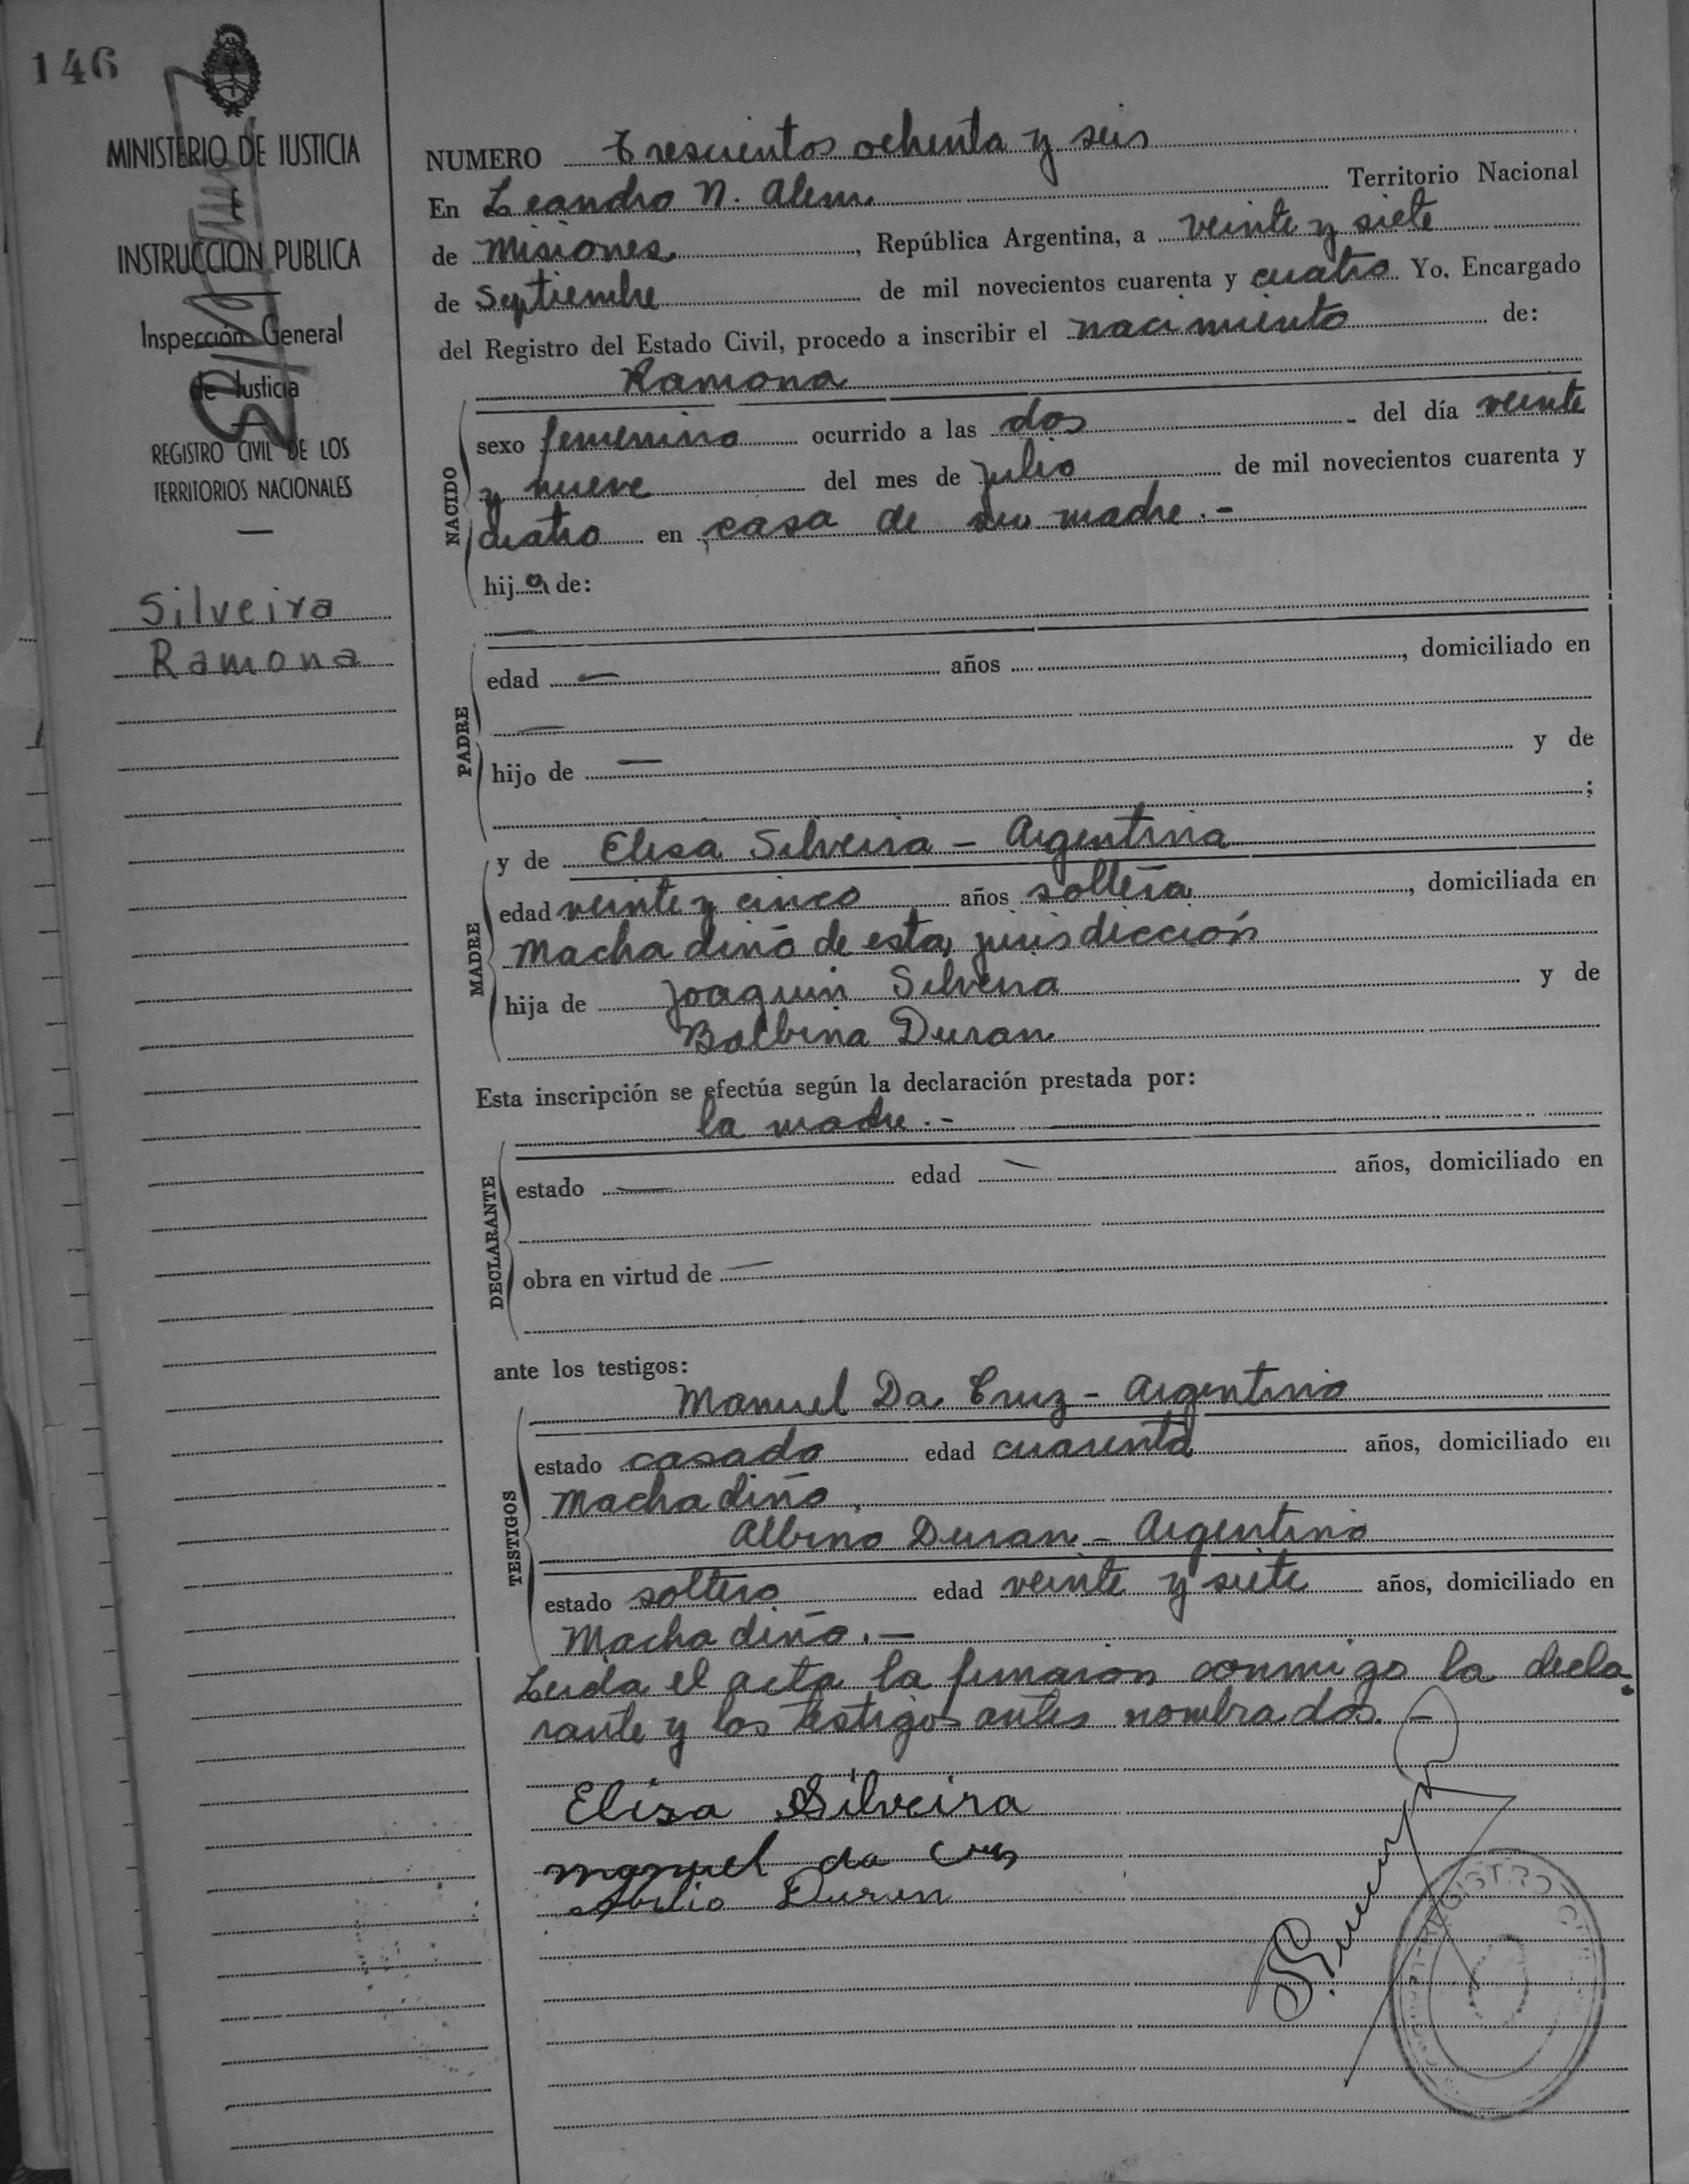 146
MINISTERIO DE JUSTICIA
E
INSTRUCCION PUBLICA
Inspección General
de Justicia
REGISTRO CIVIL DE LOS
TERRITORIOS NACIONALES
Silveira
Ramona
NUMERO Trescientos ochenta y seis
En Leandro N. Alem. Territorio Nacional
de Misiones, República Argentina, a veinte y siete
de Septiembre de mil novecientos cuarenta y cuatro Yo, Encargado
del Registro del Estado Civil, procedo a inscribir el nacimiento de:
Ramona
NACIDO
sexo femenino ocurrido a las dos del día veinte
y nueve del mes de julio de mil novecientos cuarenta y
cuatro en casa de su madre.-
hija de:
—
PADRE
edad — años , domiciliado en
—
hijo de — y de
;
MADRE
y de Elisa Silveira - Argentina
edad veinte y cinco años soltera , domiciliada en
Machadiño de esta jurisdicción
hija de Joaquin Silveira y de
Balbina Duran
Esta inscripción se efectúa según la declaración prestada por:
la madre.-
DECLARANTE
estado — edad — años, domiciliado en
obra en virtud de —
ante los testigos:
TESTIGOS
Manuel Da Cruz - Argentino
estado casado edad cuarenta años, domiciliado en
Machadiño.
Albino Duran - Argentino
estado soltero edad veinte y siete años, domiciliado en
Machadiño.—
Leida el acta la firmaron conmigo la decla-
rante y los testigos antes nombrados.-
Elisa Silveira
manuel da Cruz
Abilio Duran
REGISTRO CIVIL